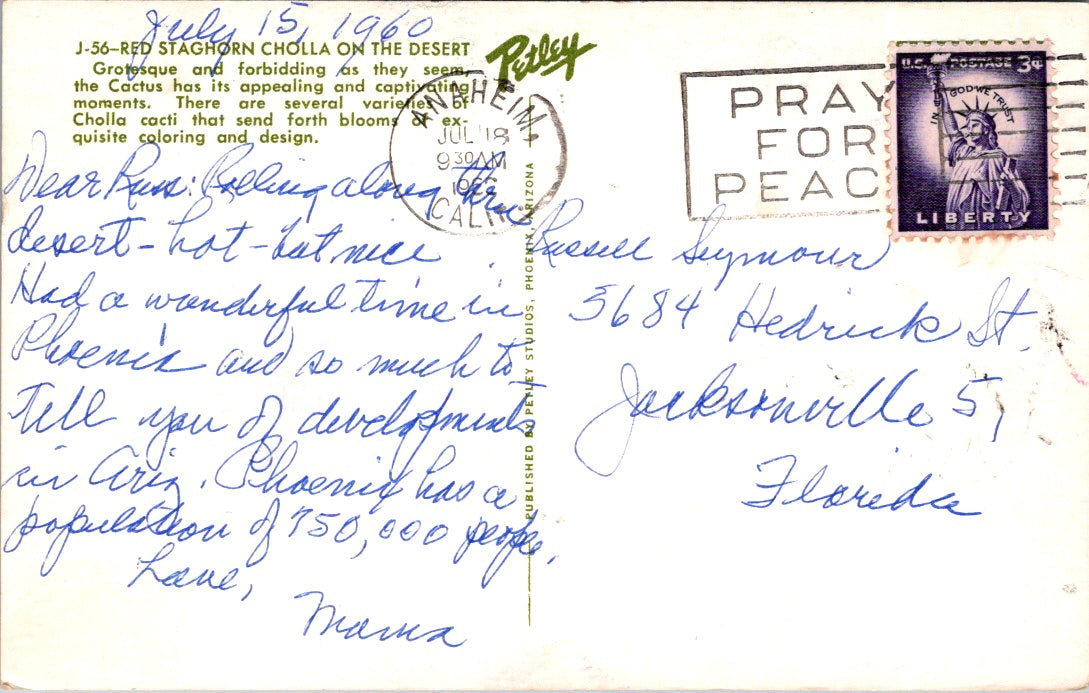 July 15, 1960
J-56—RED STAGHORN CHOLLA ON THE DESERT
Grotesque and forbidding as they seem,
the Cactus has its appealing and captivating
moments. There are several varieties of
Cholla cacti that send forth blooms of ex-
quisite coloring and design.
Petley
ANAHEIM
JUL 18
930 AM
1960
CALIF.
PRAY
FOR
PEAC
U.S. POSTAGE 3¢
IN GOD WE TRUST
LIBERTY
Dear Russ: Rolling along thru
desert - hot - but nice.
Had a wonderful time in
Phoenix and so much to
tell you of developments
in Ariz. Phoenix has a
population of 750,000 people.
Love,
Mama
PUBLISHED BY PETLEY STUDIOS, PHOENIX, ARIZONA
Russell Seymour
5684 Hedrick St.
Jacksonville 5,
Florida